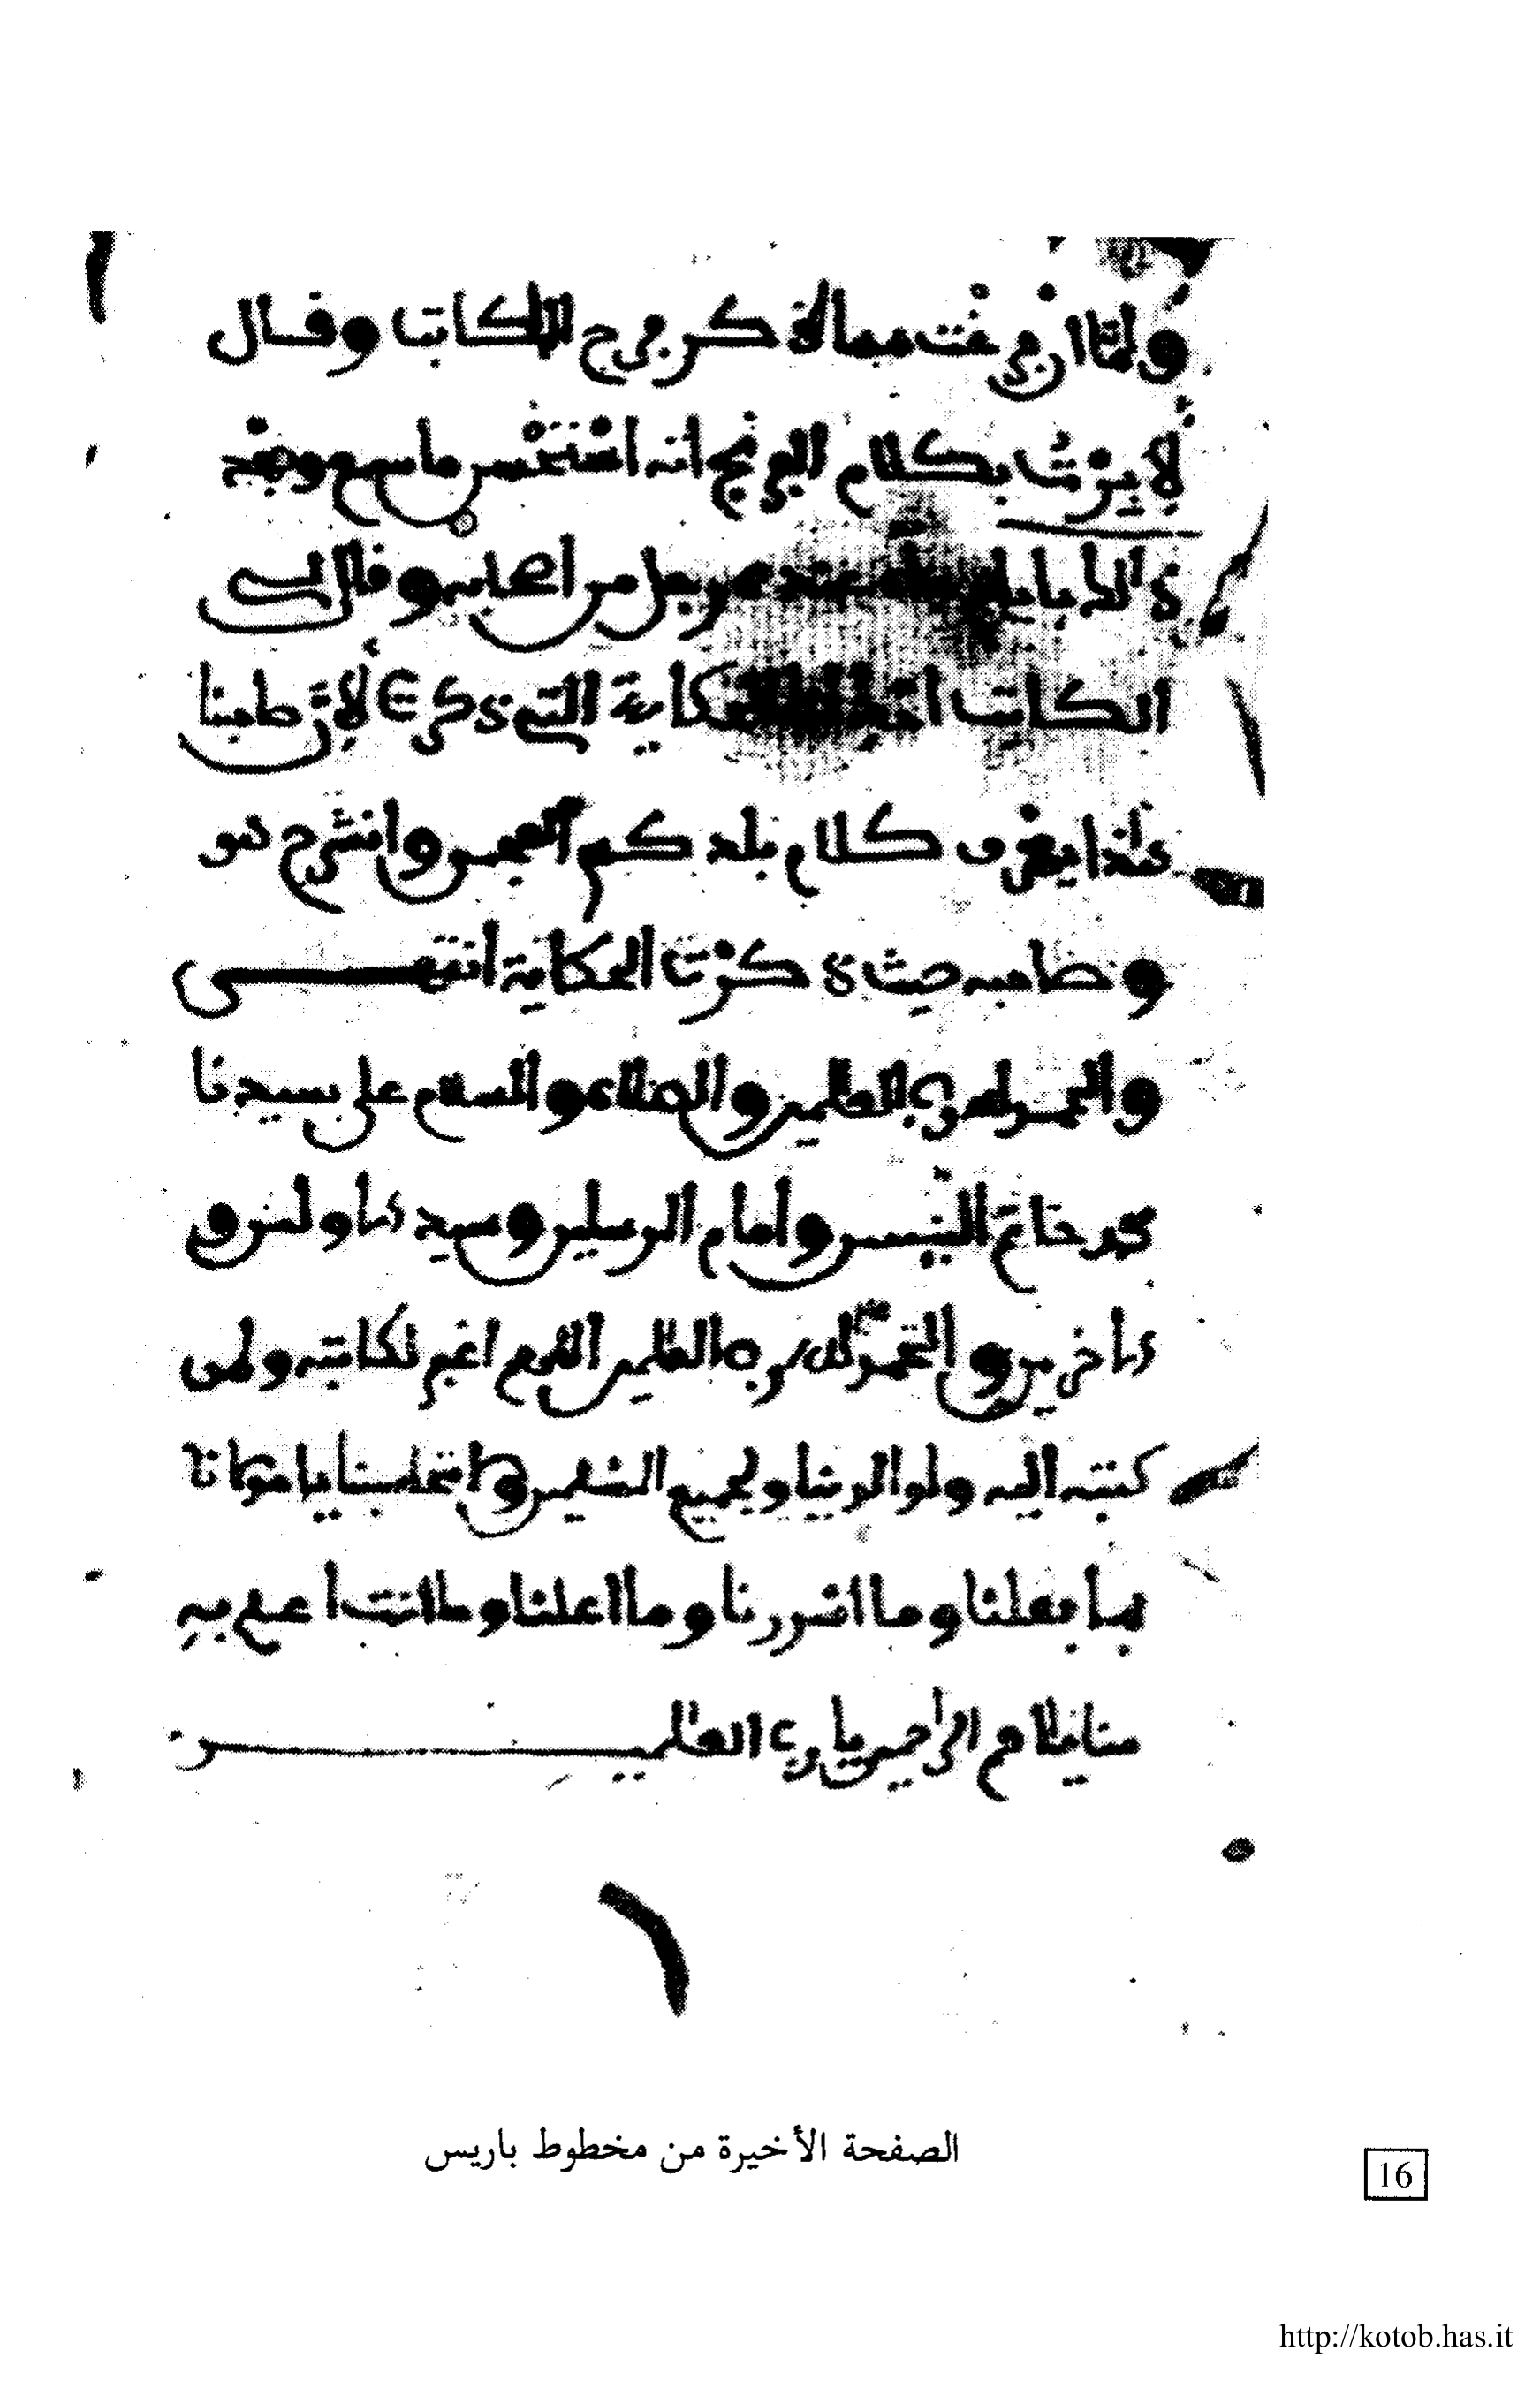 ولما ان فرغت مما ذكر فرح الكاتب وقال
لابرث بكلام الفرنج انه استحسن ما سمع وبعد
ذالك بايام عنده رجل من اصحابه وقال لي
الكاتب الحكاية التي ذكرت لابرط هنا
هذا يعرف كلام بلدكم العجمي وانشرح هو
وصاحبه حيث ذكرت الحكاية انتهى
والحمد لله رب العلمين والصلاة والسلام على سيدنا
محمد خاتم النبيين وامام المرسلين وسيد الاولين و
الاخرين والحمد لله رب العلمين اللهم اغفر لكاتبه ولمن
كتبه اليه ولوالدينا ولجميع المسلمين ولا تحاسبنا يا مولانا
بما فعلنا وما اسررنا وما اعلنا وما انت اعلم به
منا يا ارحم الراحمين يا رب العلمين
الصفحة الأخيرة من مخطوط باريس
16
http://kotob.has.it